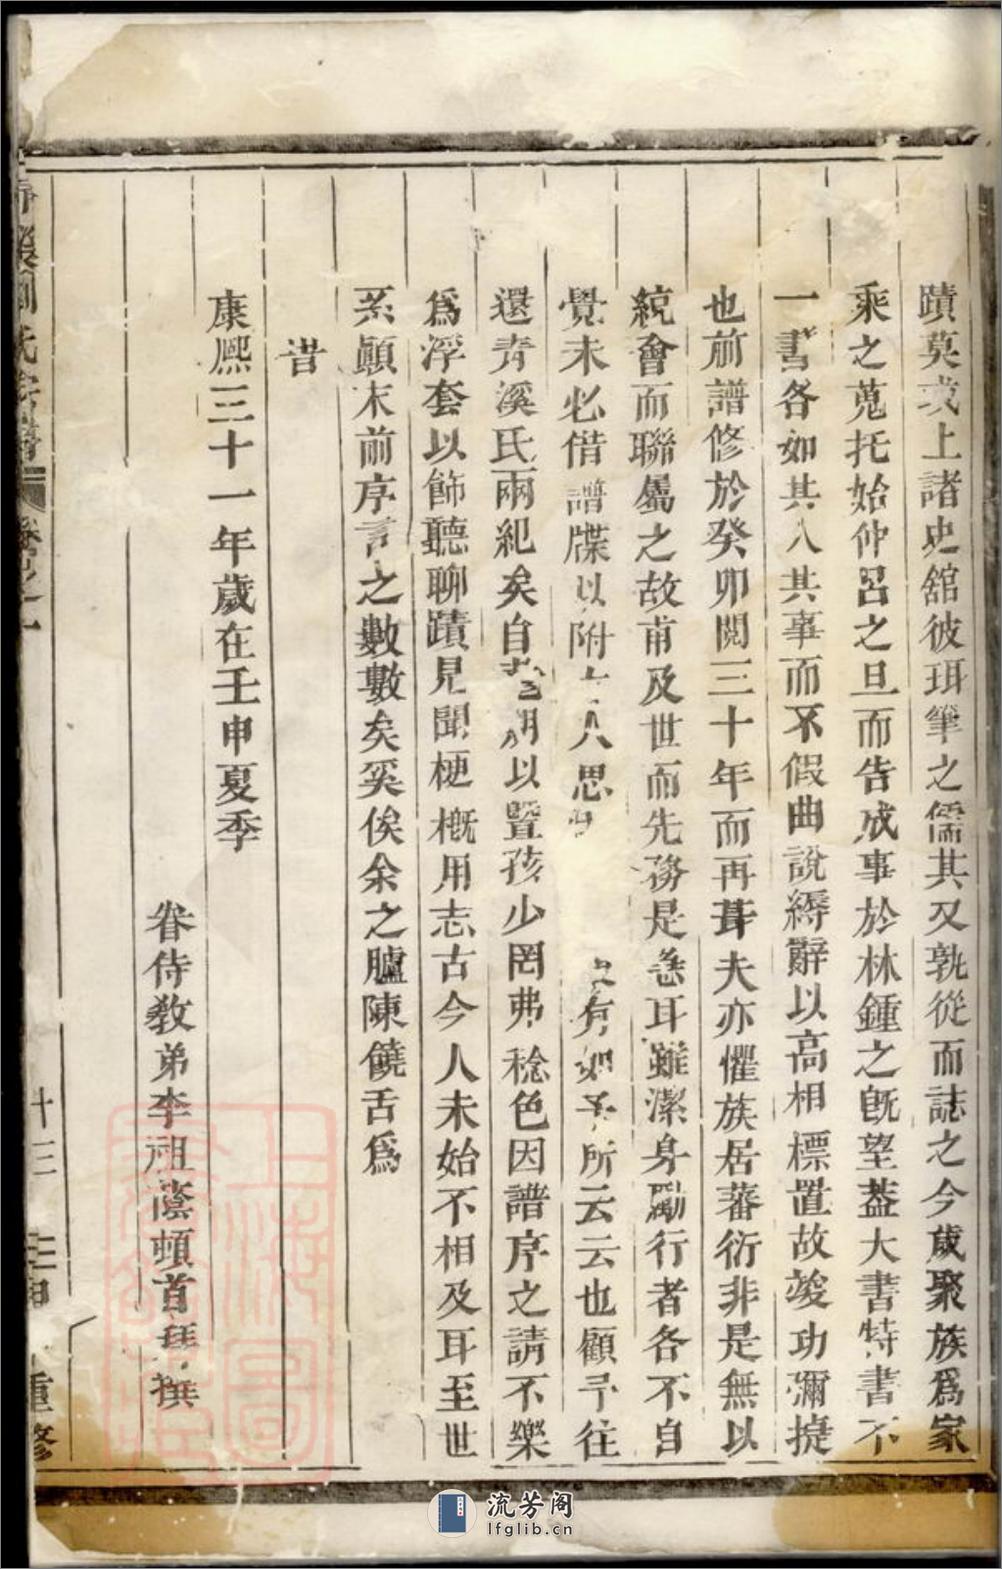 蹟莫或上諸史舘彼珥筆之儒其又孰從而誌之今歲聚族爲家
乘之蒐托始仲呂之旦而告成事於林鍾之旣望葢大書特書不
一書各如其人其事而不假曲說縟辭以高相標置故竣功彌捷
也前譜修於癸卯閱三十年而再葺夫亦懼族居蕃衍非是無以
統會而聯屬之故甫及世而先務是亟耳雖潔身勵行者各不自
覺未必借譜牒以附 人思 有如予所云云也顧予往
還青溪氏兩紀矣自 以曁孩少罔弗稔色因譜序之請不樂
爲浮套以飾聽聊蹟見聞梗槪用志古今人未始不相及耳至世
系顚末前序言之數數矣奚俟余之臚陳饒舌爲
旹
康熈三十一年歲在壬申夏季
眷侍敎弟李祖蔭頓首拜撰
氏宗譜 卷之一 十三 重修
上海圖書館藏
流芳阁
lfglib.cn